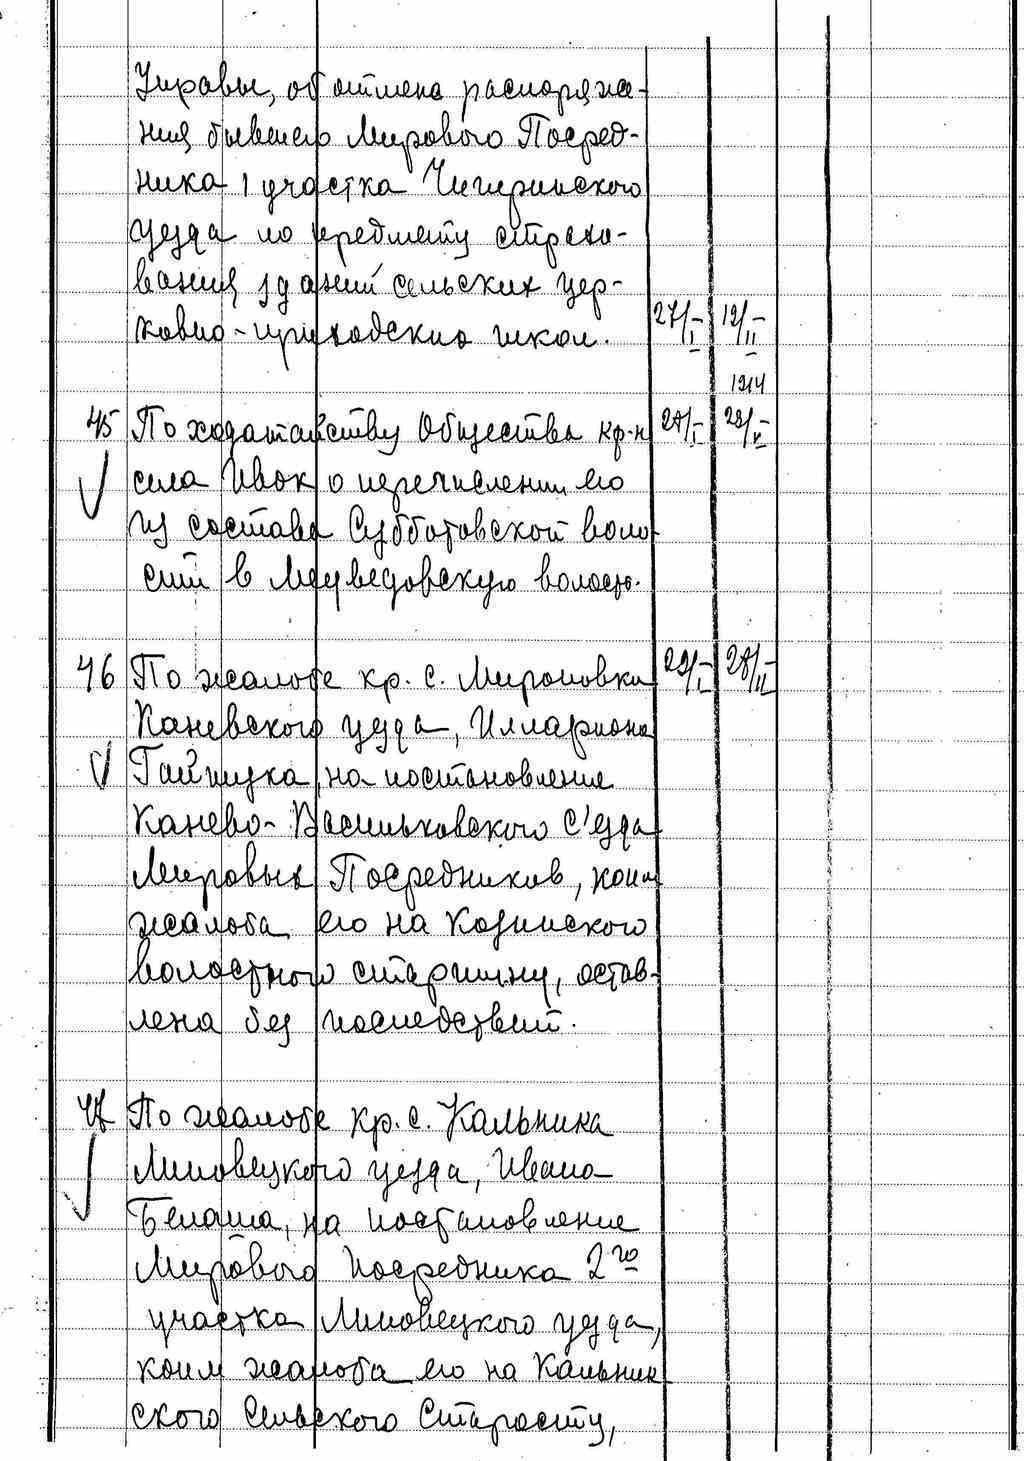 Управы, об отмене распоряже-
ния бывшего Мирового Посред-
ника 1 участка Чигиринского
уезда по предмету страхо-
вания зданий сельских цер-
ковно-приходских школ. 27/I 12/II
1914
45 По ходатайству Общества кр-н 27/I 28/V
села Ивок о перечислении его
из состава Субботовской воло-
сти в Медведовскую волость.
46 По жалобе кр. с. Мироновки 29/I 28/II
Каневского уезда, Иллариона
Гайчука, на постановление
Канево-Васильковского С'езда
Мировых Посредников, коим
жалоба его на Козинского
волостного старшину, остав-
лена без последствий.
47 По жалобе кр. с. Кальника
Липовецкого уезда, Ивана
Белаша, на постановление
Мирового Посредника 2го
участка Липовецкого уезда,
коим жалоба его на Кальник
ского Сельского Старосту,